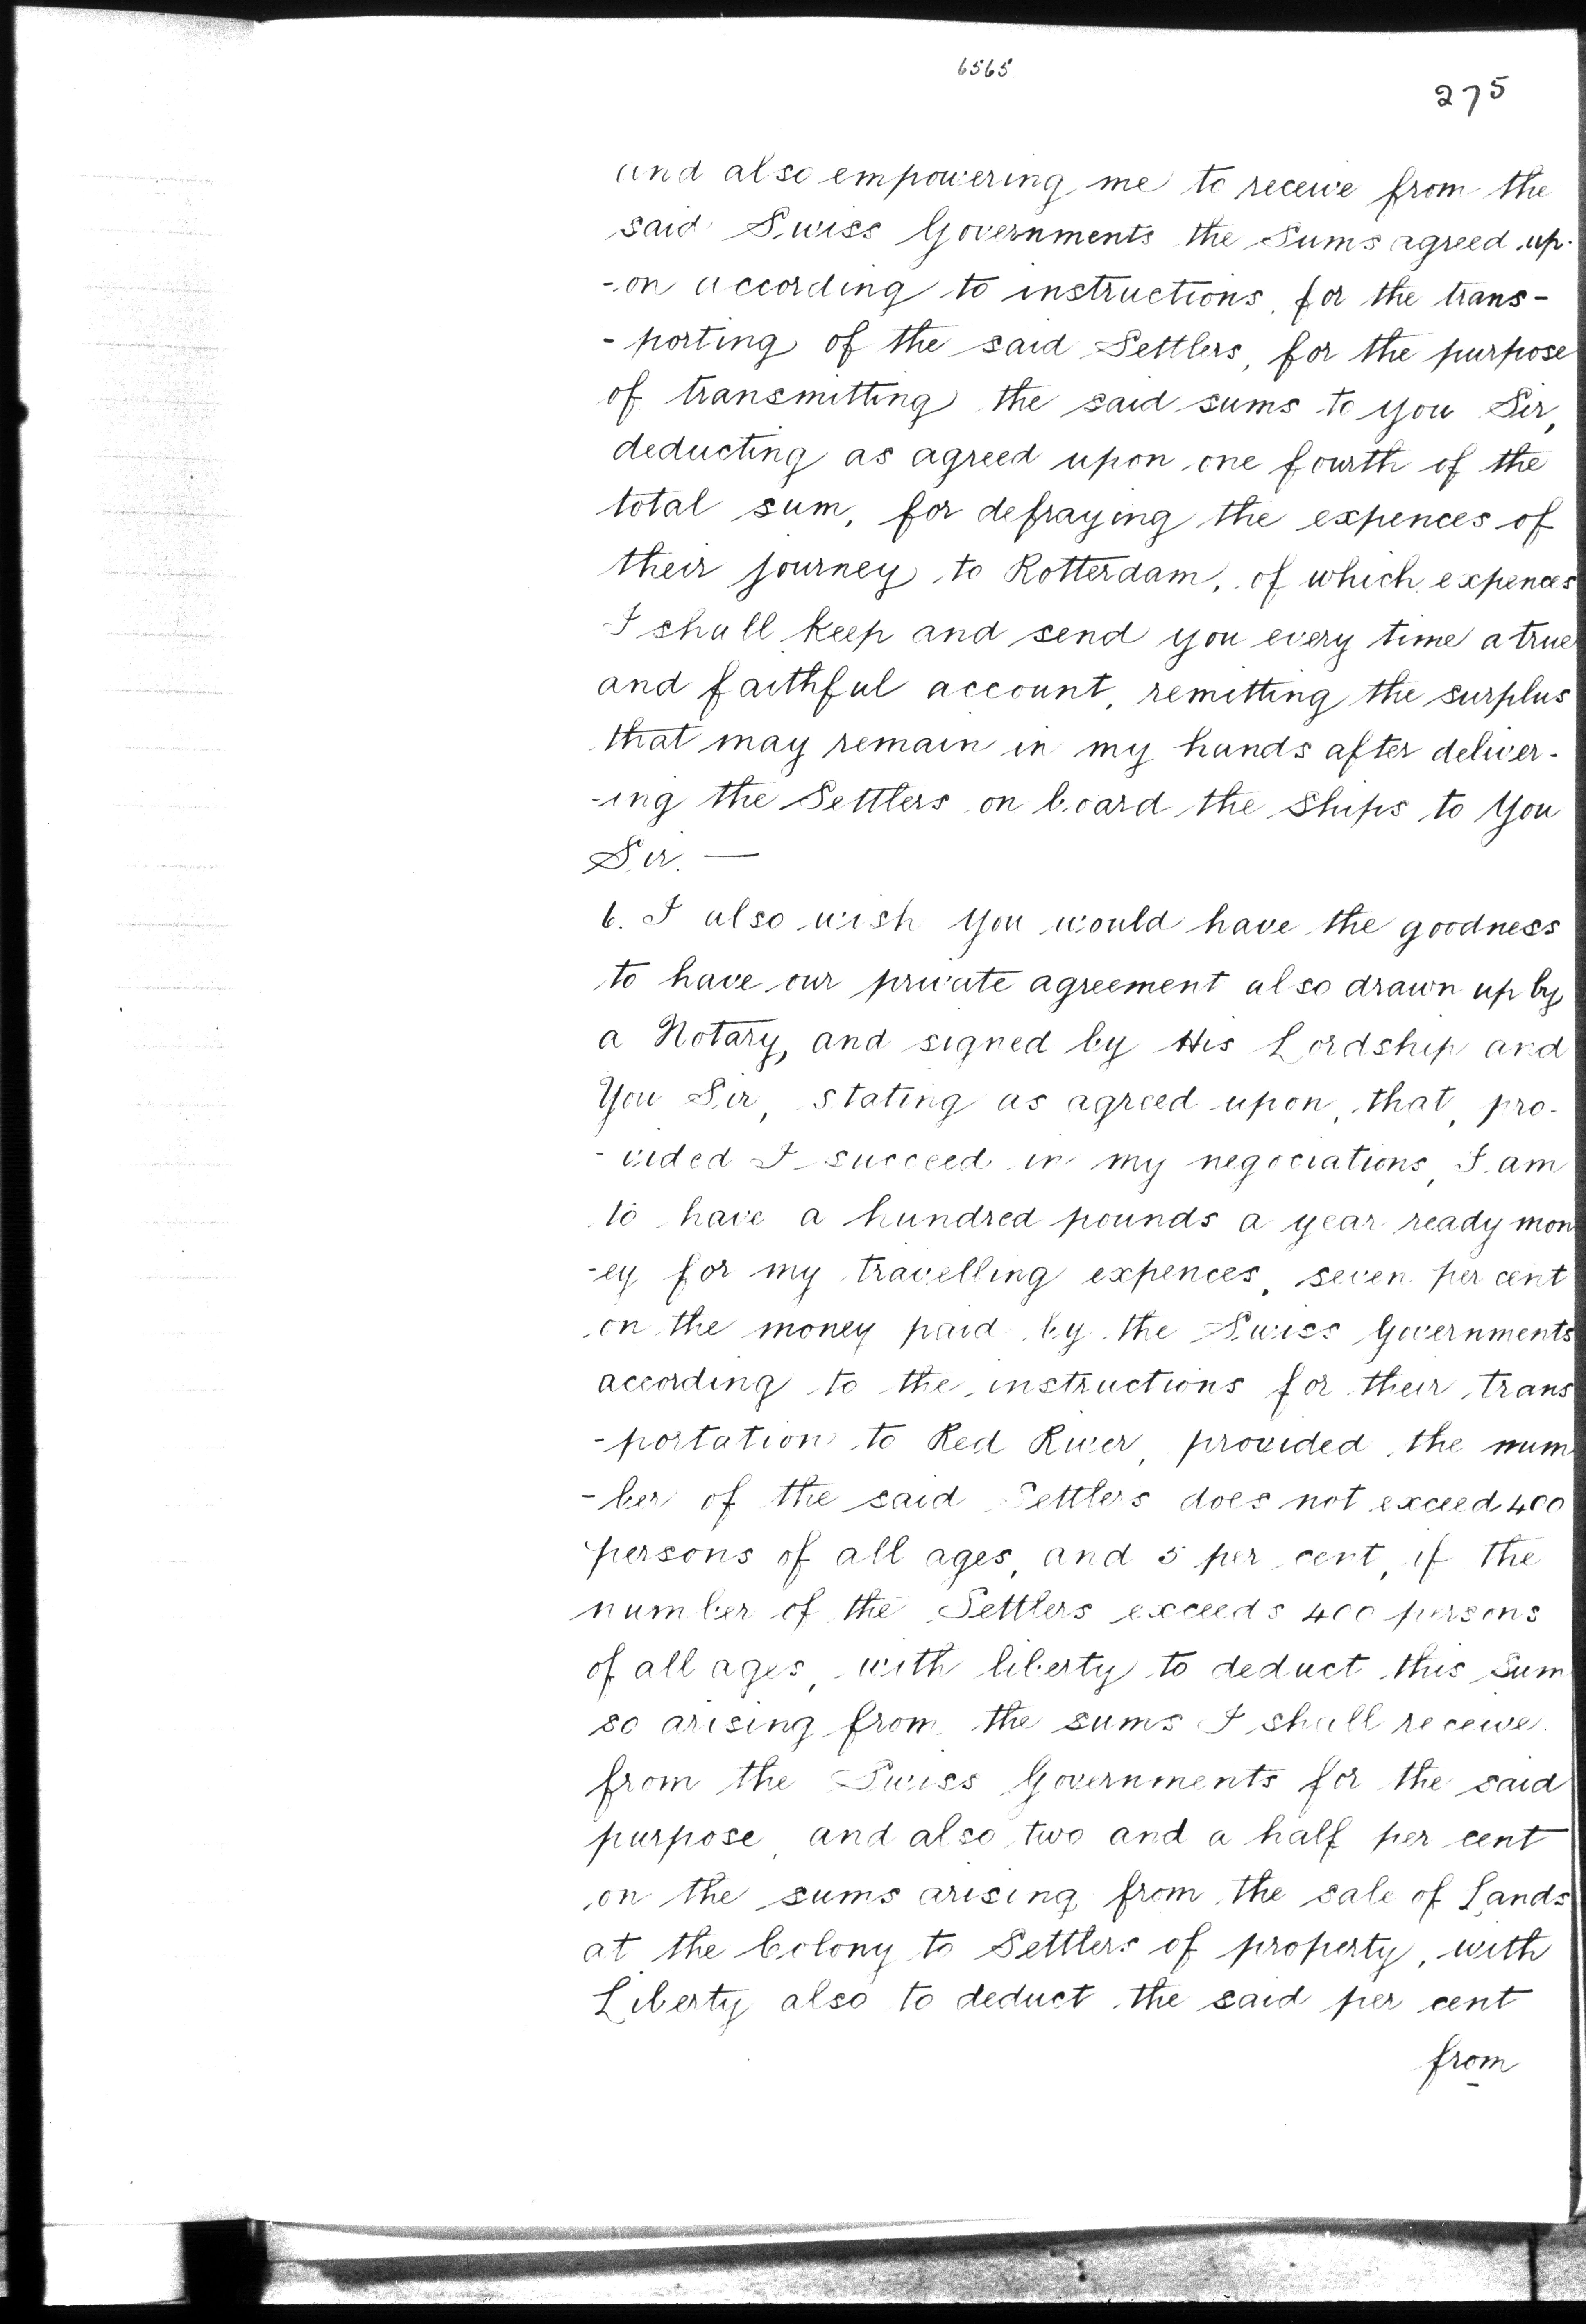 6565
275
and also empowering me to receive from the
said Swiss Governments the Sums agreed up-
-on according to instructions, for the trans-
-porting of the said Settlers, for the purpose
of transmitting the said sums to you Sir,
deducting as agreed upon one fourth of the
total sum, for defraying the expences of
their journey to Rotterdam, of which expences
I shall keep and send you every time a true
and faithful account, remitting the surplus
that may remain in my hands after deliver-
-ing the Settlers on board the Ships to You
Sir. —
6. I also wish You would have the goodness
to have our private agreement also drawn up by
a Notary, and signed by His Lordship and
You Sir, stating as agreed upon, that, pro-
-vided I succeed in my negociations, I am
to have a hundred pounds a year ready mon
-ey for my travelling expences, seven per cent
on the money paid by the Swiss Governments
according to the instructions for their trans
-portation to Red River, provided the num
-ber of the said Settlers does not exceed 400
persons of all ages, and 5 per cent, if the
number of the Settlers exceeds 400 persons
of all ages, with liberty to deduct this Sum
so arising from the sums I shall receive
from the Swiss Governments for the said
purpose, and also two and a half per cent
on the sums arising from the sale of Lands
at the Colony to Settlers of property, with
Liberty also to deduct the said per cent
from